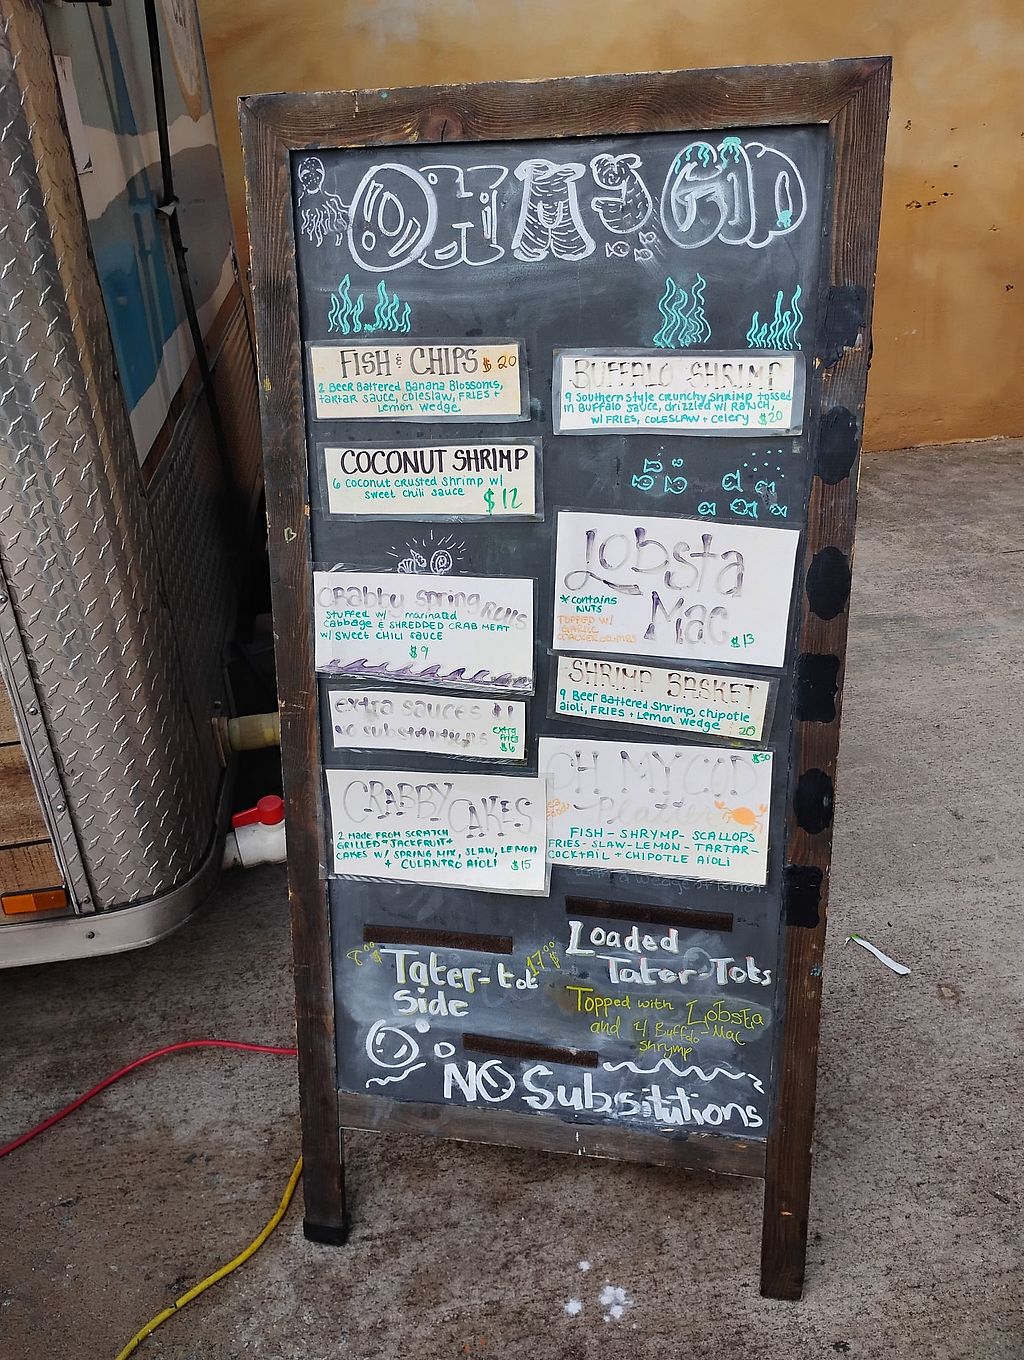 OH MY COD
FISH & CHIPS $20
2 Beer Battered Banana Blossoms,
tartar sauce, coleslaw, FRIES +
Lemon wedge
BUFFALO SHRIMP
9 Southern style crunchy shrimp tossed
in BUFFALO SAUCE, drizzled w/ RANCH,
w/ FRIES, COLESLAW + Celery $20
COCONUT SHRIMP
6 coconut crusted shrimp w/
sweet chili sauce
$12
Lobsta
Mac
*contains
NUTS
TOPPED w/
GARLIC
CRACKER CRUMBS
$13
CRabby Spring Rolls
Stuffed w/ marinated
cabbage & SHREDDED CRAB MEAT
w/ SWEET CHILI SAUCE
$9
SHRIMP BASKET
9 Beer Battered Shrimp, chipotle
aioli, FRIES + Lemon wedge
20
extra sauces $1
no substitutions
extra
Fries
$6
OH MY COD
Platter
$30
FISH - SHRYMP - SCALLOPS
FRIES - SLAW - LEMON - TARTAR -
COCKTAIL + CHIPOTLE AIOLI
CRABBY CAKES
2 MADE FROM SCRATCH
GRILLED JACKFRUIT
CAKES W/ SPRING MIX, SLAW, LEMON
+ CULANTRO AIOLI $15
Tater-tot
Side
17.00
Loaded
Tater-Tots
Topped with Lobsta
and 4 Buffalo Mac
shrymp
NO Substitutions